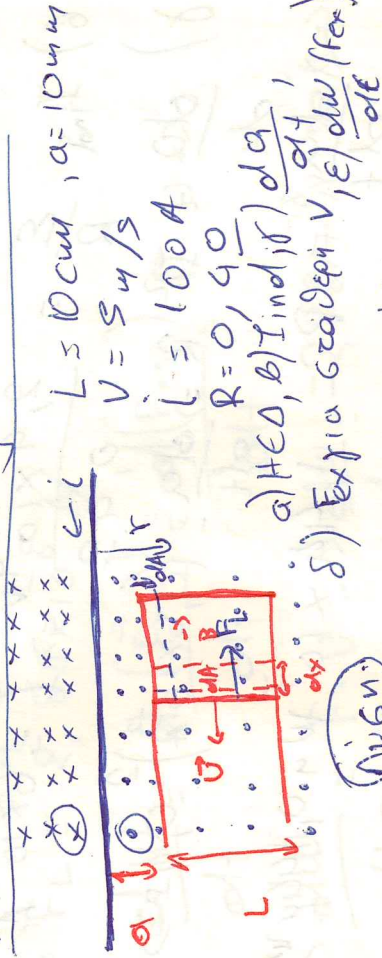 L = 10 cm, a = 10 mm
V = 5 m/s
i = 100 A
R = 0,4 Ω
a) ΗΕΔ, β) I ind, γ) dq/dt,
δ) Fεχ για σταθερή V, ε) dw (Fεχ)/dt
← i
r
dA
a
L
U
B
dA
FL
dx
Λύση: